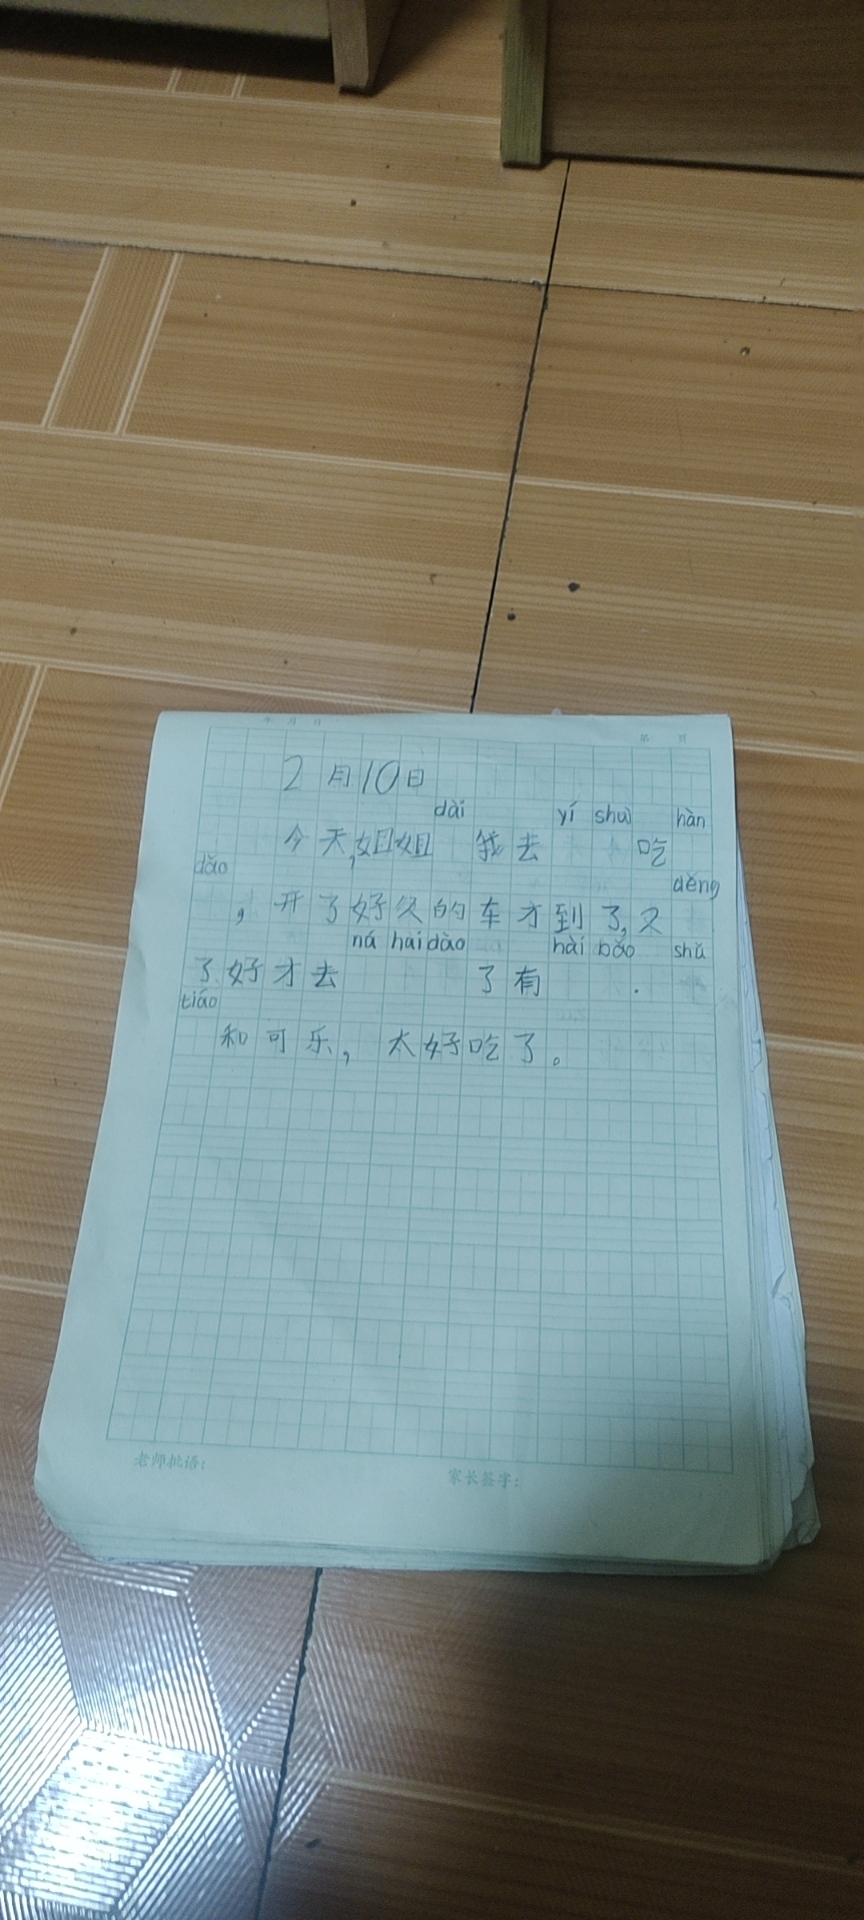 年 月 日 第 页
2月10日
dài yí shuì hàn
今天,姐姐 我去 吃
dǎo děng
,开了好久的车才到了,又
ná hai dào hài bǎo shǔ
了好才去 了有 .
tiáo
和可乐,太好吃了。
老师批语:
家长签字: